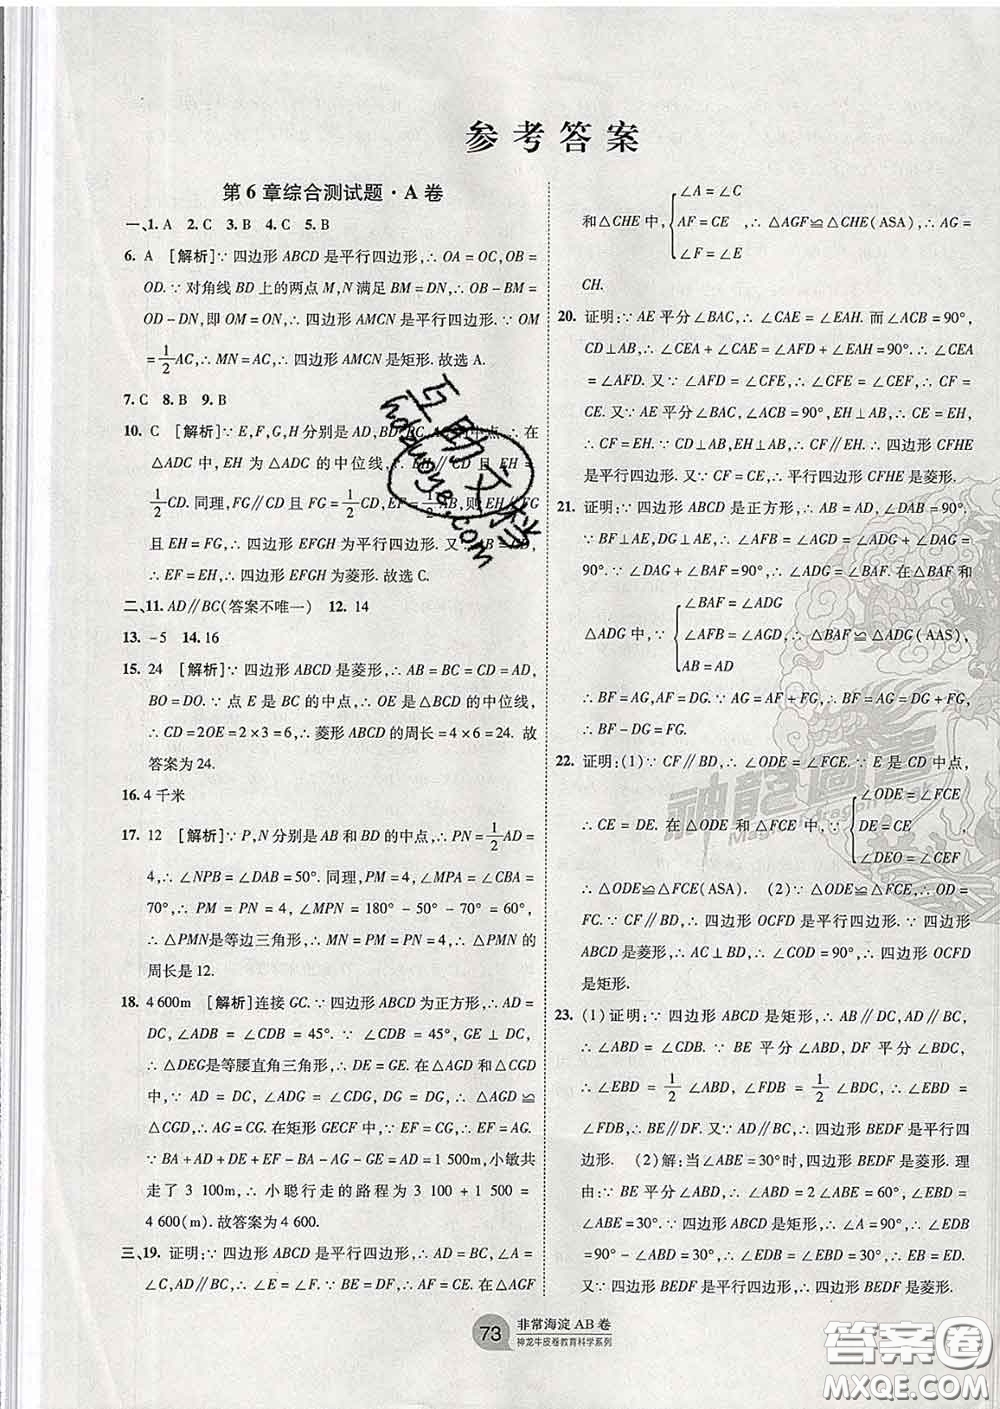 参考答案
第6章综合测试题·A卷
一、1. A 2. C 3. B 4. C 5. B
6. A [解析]∵四边形ABCD是平行四边形,∴OA=OC,OB=
OD.∵对角线BD上的两点M,N满足BM=DN,∴OB-BM=
OD-DN,即OM=ON,∴四边形AMCN是平行四边形.∵OM
=1/2AC,∴MN=AC,∴四边形AMCN是矩形.故选A.
7. C 8. B 9. B
10. C [解析]∵E,F,G,H分别是AD,BD,BC,AC的中点,∴在
△ADC中,EH为△ADC的中位线,∴EH∥CD且EH=
1/2CD.同理,FG∥CD且FG=1/2CD,EF=1/2AB,则EH∥FG
且EH=FG,∴四边形EFGH为平行四边形.又∵AB=CD,
∴EF=EH,∴四边形EFGH为菱形.故选C.
二、11. AD∥BC(答案不唯一) 12. 14
13. -5 14. 16
15. 24 [解析]∵四边形ABCD是菱形,∴AB=BC=CD=AD,
BO=DO.∵点E是BC的中点,∴OE是△BCD的中位线,
∴CD=2OE=2×3=6,∴菱形ABCD的周长=4×6=24.故
答案为24.
16. 4千米
17. 12 [解析]∵P,N分别是AB和BD的中点,∴PN=1/2AD=
4,∴∠NPB=∠DAB=50°.同理,PM=4,∠MPA=∠CBA=
70°,∴PM=PN=4,∠MPN=180°-50°-70°=60°,
∴△PMN是等边三角形,∴MN=PM=PN=4,∴△PMN的
周长是12.
18. 4 600m [解析]连接GC.∵四边形ABCD为正方形,∴AD=
DC,∠ADB=∠CDB=45°.∵∠CDB=45°,GE⊥DC,
∴△DEG是等腰直角三角形,∴DE=GE.在△AGD和△GDC
中,∵AD=DC,∠ADG=∠CDG,DG=DG,∴△AGD≌
△CGD,∴AG=CG.在矩形GECF中,∴EF=CG,∴EF=AG.
∵BA+AD+DE+EF-BA-AG-GE=AD=1 500m,小敏共
走了3 100m,∴小聪行走的路程为3 100+1 500=
4 600(m).故答案为4 600.
三、19. 证明:∵四边形ABCD是平行四边形,∴AD=BC,∠A=
∠C,AD∥BC,∴∠E=∠F.∵BE=DF,∴AF=CE.在△AGF
∠A=∠C
和△CHE中, AF=CE ,∴△AGF≌△CHE(ASA),∴AG=
∠F=∠E
CH.
20. 证明:∵AE平分∠BAC,∴∠CAE=∠EAH.而∠ACB=90°,
CD⊥AB,∴∠CEA+∠CAE=∠AFD+∠EAH=90°,∴∠CEA
=∠AFD.又∵∠AFD=∠CFE,∴∠CFE=∠CEF,∴CF=
CE.又∵AE平分∠BAC,EC⊥AC,EH⊥AB,∴CE=EH,
∴CF=EH.∵CD⊥AB,EH⊥AB,∴CF∥EH.∴四边形CFHE
是平行四边形.又∵CF=CE,∴平行四边形CFHE是菱形.
21. 证明:∵四边形ABCD是正方形,∴AB=AD,∠DAB=90°.
∵BF⊥AE,DG⊥AE,∴∠AFB=∠AGD=∠ADG+∠DAG=
90°.∵∠DAG+∠BAF=90°,∴∠ADG=∠BAF.在△BAF和
∠BAF=∠ADG
△ADG中,∵ ∠AFB=∠AGD,∴△BAF≌△ADG(AAS),
AB=AD
∴BF=AG,AF=DG.∵AG=AF+FG,∴BF=AG=DG+FG,
∴BF-DG=FG.
22. 证明:(1)∵CF∥BD,∴∠ODE=∠FCE.∵E是CD中点,
∠ODE=∠FCE
∴CE=DE.在△ODE和△FCE中,∵ DE=CE ,
∠DEO=∠CEF
∴△ODE≌△FCE(ASA). (2)∵△ODE≌△FCE,∴OD=
FC.∵CF∥BD,∴四边形OCFD是平行四边形.∵四边形
ABCD是菱形,∴AC⊥BD,∴∠COD=90°,∴四边形OCFD
是矩形.
23. (1)证明:∵四边形ABCD是矩形,∴AB∥DC,AD∥BC,
∴∠ABD=∠CDB.∵BE平分∠ABD,DF平分∠BDC,
∴∠EBD=1/2∠ABD,∠FDB=1/2∠BDC,∴∠EBD=
∠FDB,∴BE∥DF.又∵AD∥BC,∴四边形BEDF是平行四
边形. (2)解:当∠ABE=30°时,四边形BEDF是菱形.理
由:∵BE平分∠ABD,∴∠ABD=2∠ABE=60°,∠EBD=
∠ABE=30°.∵四边形ABCD是矩形,∴∠A=90°,∴∠EDB
=90°-∠ABD=30°,∴∠EDB=∠EBD=30°,∴EB=ED.
又∵四边形BEDF是平行四边形,∴四边形BEDF是菱形.
73
非常海淀AB卷
神龙牛皮卷教育科学系列
互助文档
hdzuoye.com
神龙圖書
答案卷
MXQE.COM